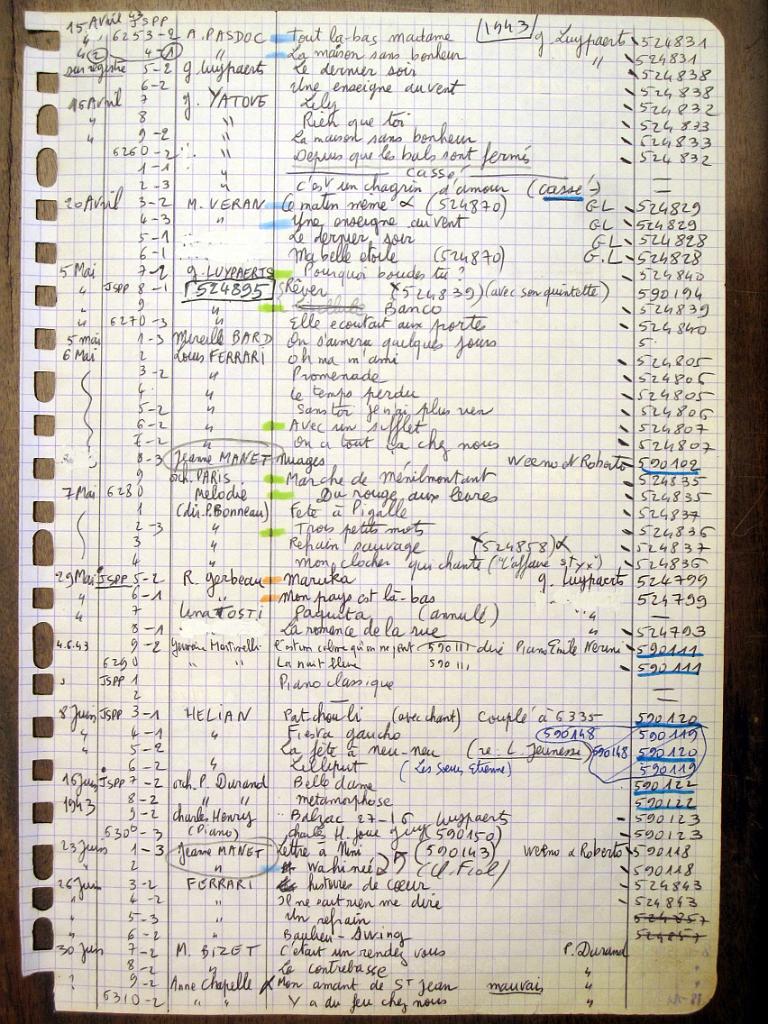 15 Avril 43 JSPP 1943
" 6253-2 A. PASDOC Tout là-bas madame g. Luypaerts 524831
" 2 4-1 " La maison sans bonheur " 524831
sur registre 5-2 g. Luypaerts Le dernier soir 524838
6-2 Une enseigne au vent 524838
16 Avril 7 g. YATOVE Lily 524832
" 8 " Rien que toi 524833
" 9-2 " La maison sans bonheur 524833
6260-2 " Depuis que les bals sont fermés 524832
1-1 " cassé
2-3 " C'est un chagrin d'amour (cassé) =
20 Avril 3-2 M. VERAN Ce matin même α (524870) GL 524829
4-3 " Une enseigne au vent GL 524829
5-1 Le dernier soir GL 524828
6-1 Ma belle etoile (524870) G.L 524828
5 Mai 7-2 g. LUYPAERTS Pourquoi boudes tu ? 524840
" JSPP 8-1 524895 Rêver X 524839) (avec son quintette) 590194
" 9 " Banco 524839
" 6270-3 " Elle ecoutait aux portes 524840
5 mai 1-3 Mireille BARD On s'aimera quelques jours 5
6 Mai 2 Louis FERRARI oh ma m'ami 524805
3-2 " Promenade 524806
4 " Le temps perdu 524805
5-2 " Sans toi je n'ai plus rien 524806
6-2 " Avec un sifflet 524807
7-2 " On a tout ça chez nous 524807
8-3 Jeanne MANET Nuages Werno et Roberto 590102
9 orch. PARIS Marche de Ménilmontant 524835
7 Mai 6280 Mélodie Du rouge aux levres 524835
(dir. P. Bonneau) Fete à Pigalle 524837
2-3 " Trois petits mots 524836
3 " Refrain sauvage X 524858) α 524837
4 " mon clocher qui chante ("L'affaire Styx") 524836
29 Mai JSPP 5-2 R. Gerbeau Maruka g. Luypaerts 524799
" 6-1 " Mon pays est là-bas 524799
" 7 Lina TOSTI Paquita (annulé) "
8-1 La romance de la rue " 524793
4.6.43 9-2 Martinelli 590111 Piano Emile Nerini 590111
6290 " " La nuit bleue 590111 590111
" JSPP 1 Piano classique =
2
8 Juin JSPP 3-1 HELIAN Patchou-li (avec chant) Couplé à 6335 590120
" 4-1 " Fiesta gaucho 590148 590119
" 5-2 La fête à neu-neu (re: L. Jeunesse) 590148 590120
" 6-2 " Lilliput (Les Soeurs Etienne) 590119
16 Juin JSPP 7-2 orch. P. Durand Belle dame 590122
1943 8-2 " " metamorphose 590122
9-2 charles Henry Balzac 27-16 Luypaerts 590123
6300-3 (Piano) charles H. joue Guy (590150) 590123
23 Juin 1-3 Jeanne MANET Lettre à Nini (590143) Werno & Roberto 590118
" 2 " Wahinee 590118
26 Juin 3-2 FERRARI histoires de cœur 524843
" 4-2 " Il ne faut rien me dire 524843
5-3 " Un refrain 524857
" 6-2 " Baulieu-Swing 524857
30 Juin 7-2 M. BIZET C'était un rendez vous P. Durand
8-2 " La contrebasse "
? 9-2 Anne Chapelle α Mon amant de St Jean mauvais "
6310-2 " " Y a du feu chez nous "